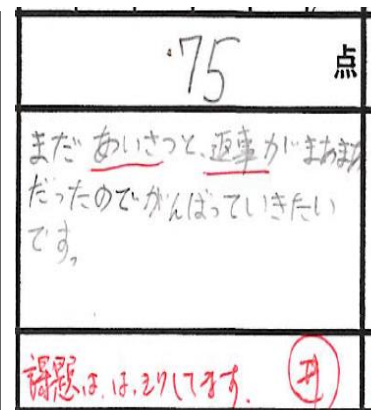 75 点
まだあいさつと、返事がまあまあ
だったのでがんばっていきたい
です。
課題は、はっきりしてます。